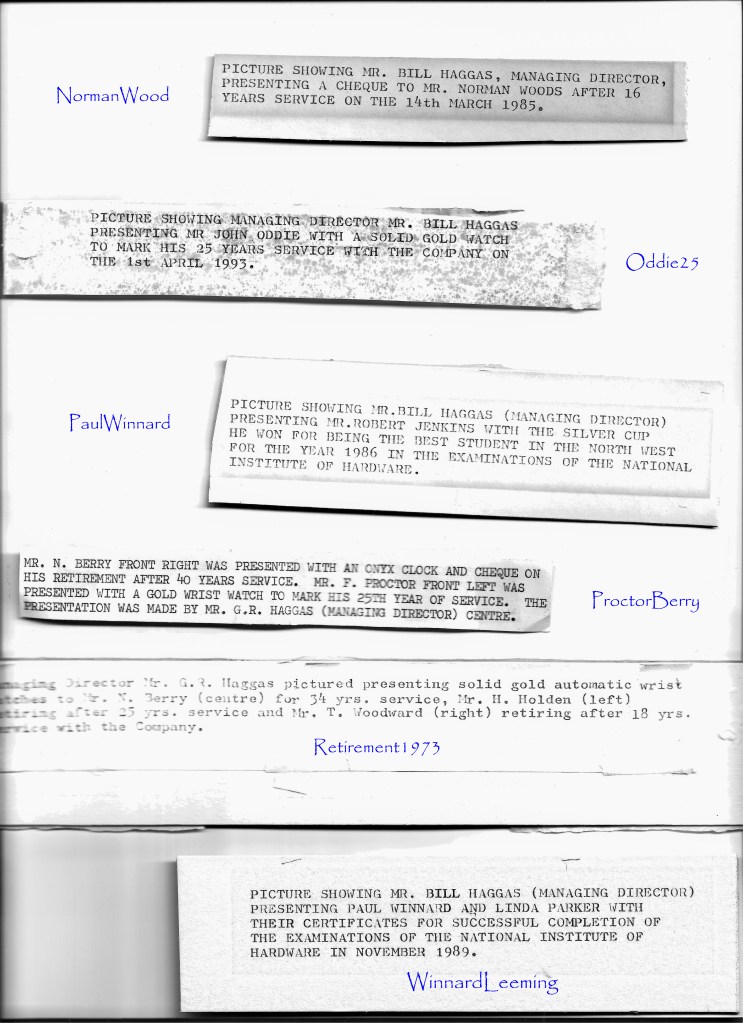 PICTURE SHOWING MR. BILL HAGGAS, MANAGING DIRECTOR,
PRESENTING A CHEQUE TO MR. NORMAN WOODS AFTER 16
YEARS SERVICE ON THE 14th MARCH 1985.
NormanWood
PICTURE SHOWING MANAGING DIRECTOR MR. BILL HAGGAS
PRESENTING MR JOHN ODDIE WITH A SOLID GOLD WATCH
TO MARK HIS 25 YEARS SERVICE WITH THE COMPANY ON
THE 1st APRIL 1993.
Oddie25
PaulWinnard
PICTURE SHOWING MR.BILL HAGGAS (MANAGING DIRECTOR)
PRESENTING MR.ROBERT JENKINS WITH THE SILVER CUP
HE WON FOR BEING THE BEST STUDENT IN THE NORTH WEST
FOR THE YEAR 1986 IN THE EXAMINATIONS OF THE NATIONAL
INSTITUTE OF HARDWARE.
MR. N. BERRY FRONT RIGHT WAS PRESENTED WITH AN ONYX CLOCK AND CHEQUE ON
HIS RETIREMENT AFTER 40 YEARS SERVICE. MR. F. PROCTOR FRONT LEFT WAS
PRESENTED WITH A GOLD WRIST WATCH TO MARK HIS 25TH YEAR OF SERVICE. THE
PRESENTATION WAS MADE BY MR. G.R. HAGGAS (MANAGING DIRECTOR) CENTRE.
ProctorBerry
naging Director Mr. G.R. Haggas pictured presenting solid gold automatic wrist
tches to Mr. N. Berry (centre) for 34 yrs. service, Mr. H. Holden (left)
tiring after 25 yrs. service and Mr. T. Woodward (right) retiring after 18 yrs.
rvice with the Company.
Retirement1973
PICTURE SHOWING MR. BILL HAGGAS (MANAGING DIRECTOR)
PRESENTING PAUL WINNARD AND LINDA PARKER WITH
THEIR CERTIFICATES FOR SUCCESSFUL COMPLETION OF
THE EXAMINATIONS OF THE NATIONAL INSTITUTE OF
HARDWARE IN NOVEMBER 1989.
WinnardLeeming